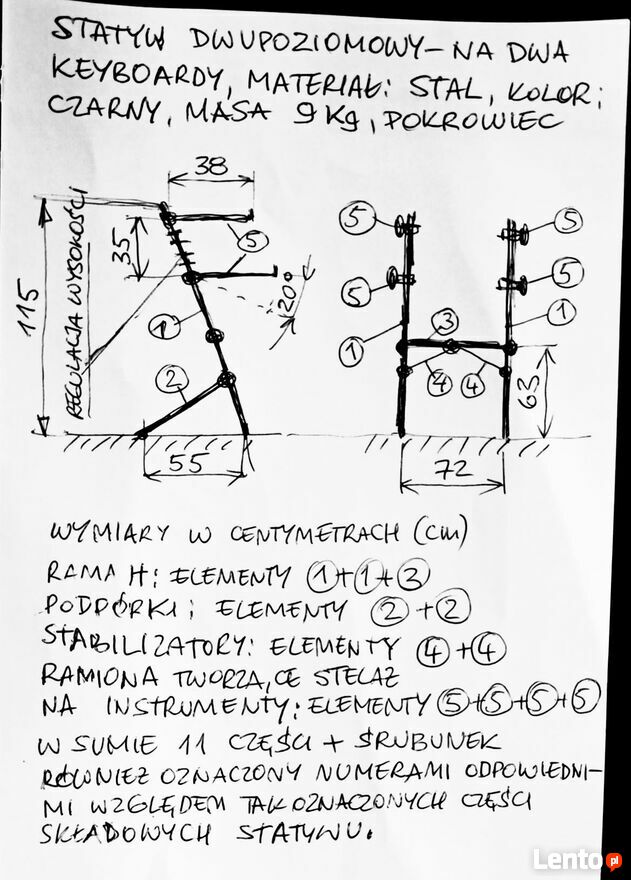 STATYW DWUPOZIOMOWY – NA DWA
KEYBOARDY, MATERIAŁ: STAL, KOLOR:
CZARNY, MASA 9 Kg, POKROWIEC
38
35
5
115
REGULACJA WYSOKOŚCI
20°
1
2
55
5
5
5
5
3
1
1
4
4
63
72
WYMIARY W CENTYMETRACH (cm)
RAMA H: ELEMENTY 1+1+3
PODPÓRKI: ELEMENTY 2+2
STABILIZATORY: ELEMENTY 4+4
RAMIONA TWORZĄCE STELAŻ
NA INSTRUMENTY: ELEMENTY 5+5+5+5
W SUMIE 11 CZĘŚCI + ŚRUBUNEK
RÓWNIEŻ OZNACZONY NUMERAMI ODPOWIEDNI-
MI WZGLĘDEM TAK OZNACZONYCH CZĘŚCI
SKŁADOWYCH STATYWU.
Lento.pl